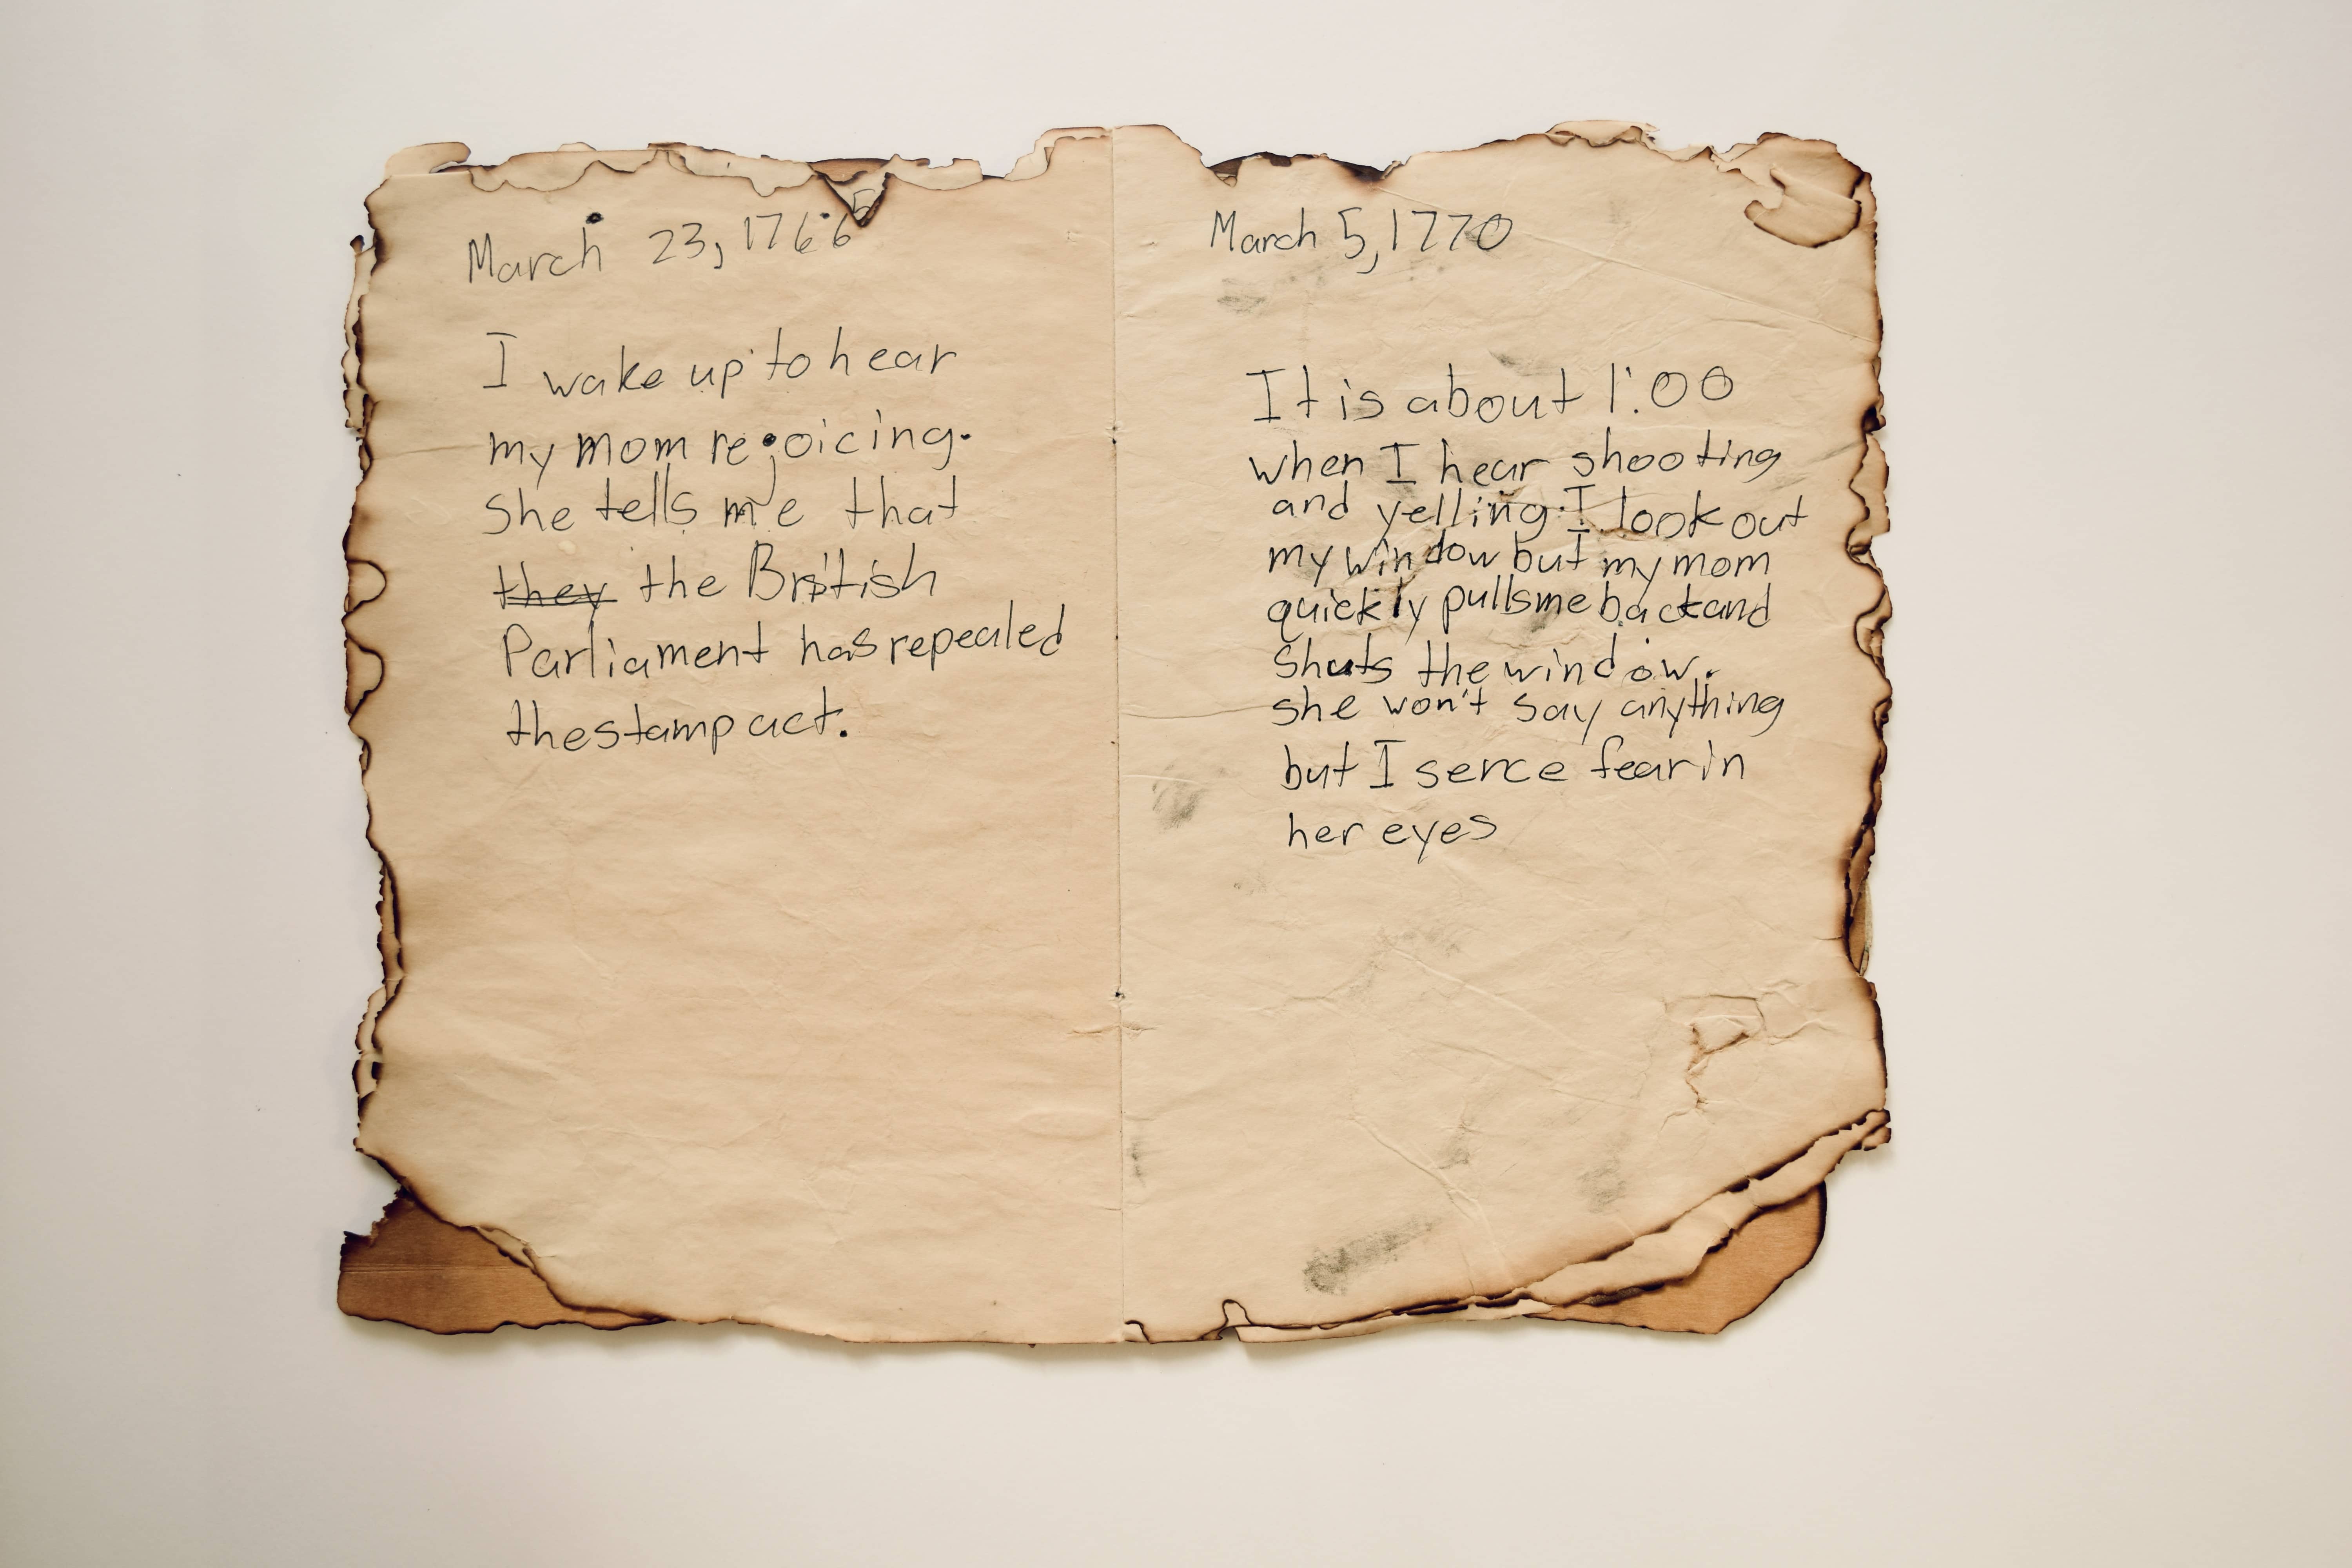 March 23, 1766
I wake up to hear
my mom rejoicing.
she tells me that
they the British
Parliament has repealed
the stamp act.
March 5, 1770
It is about 1:00
when I hear shooting
and yelling. I look out
my window but my mom
quickly pulls me back and
shuts the window.
she won't say anything
but I sence fear in
her eyes